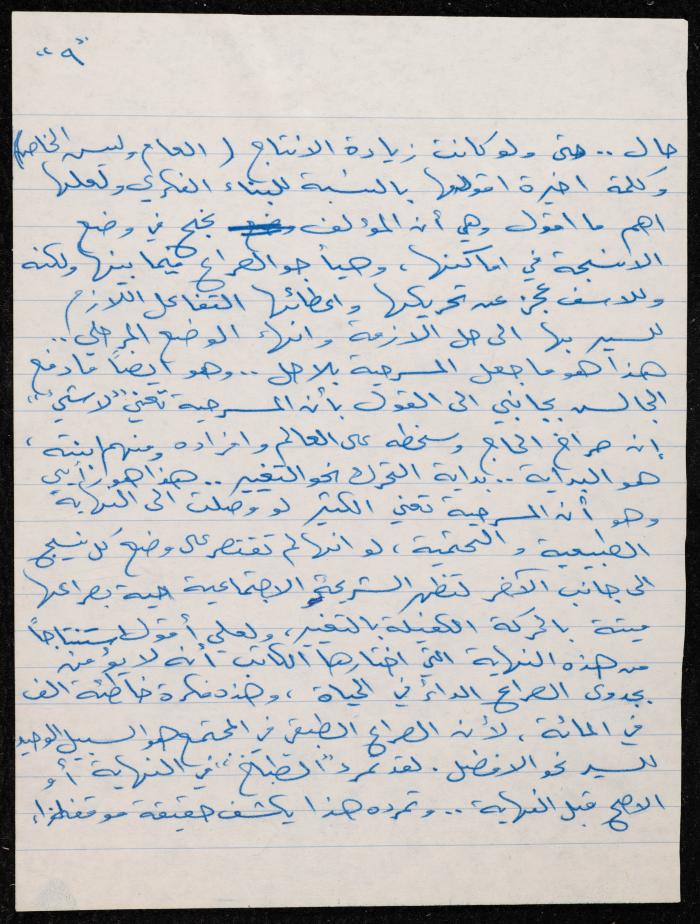 "٩"
حال .. حتى ولو كانت زيادة الانتاج ( العام وليس الخاص )
وكلمة اخيرة اقولها بالنسبة للبناء الفكري ولعلها
اهم ما اقول وهي أن المؤلف نجح في وضع
الانسجة في اماكنها ، وهيأ جو الصراع فيما بينها ولكنه
وللاسف عجز عن تحريكها واعطائها التفاعل اللازم
للسير بها الى حل الازمة وانهاء الوضع المرحلي ..
هذا هو ما جعل المسرحية بلا حل .. وهو ايضاً ما دفع
الجالس بجانبي الى القول بأن المسرحية تعني "لا شيء"
إن صراخ الحاج وسخطه على العالم وافراده ومنهم ابنته ،
هو البداية .. بداية التحرك نحو التغيير .. هذا هو رأيي
وهو أن المسرحية تعني الكثير لو وصلت الى النهاية
الطبيعية والحتمية ، لو انها لم تقتصر على وضع كل نسيج
الى جانب الآخر لتظهر الشريحة الاجتماعية حية بصراعها
ميتة بالحركة الكفيلة بالتغيير ، ولعلي أقول استنتاجاً
من هذه النهاية التي اختارها الكاتب أنه لا يؤمن
بجدوى الصراع الدائر في الحياة ، وهذه فكرة خاطئة الف
في المائة ، لأن الصراع الطبقي في المجتمع هو السبيل الوحيد
للسير نحو الافضل . لقد تمرد "الطباخ" في النهاية أو
الاصح قبل النهاية .. وتمرده هذا يكشف حقيقة موقف